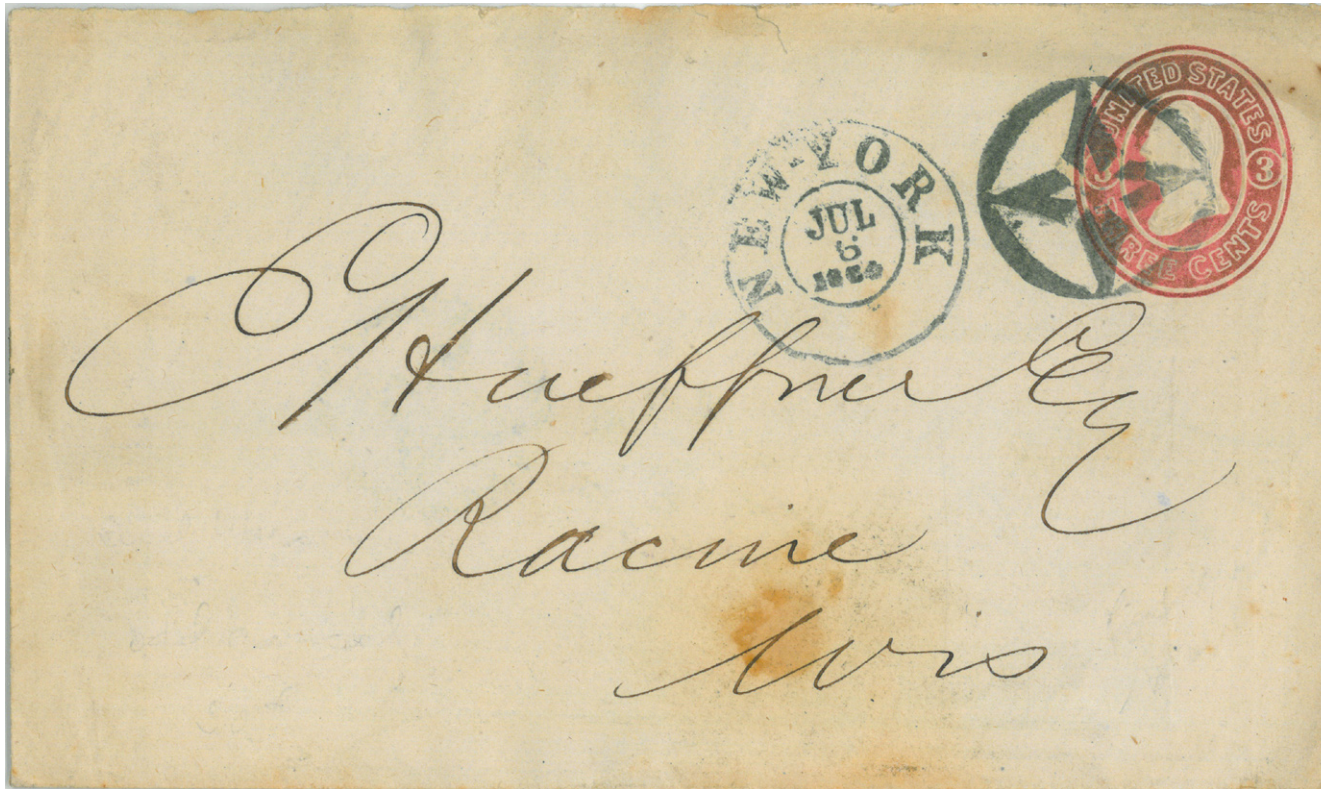 UNITED STATES
3
THREE CENTS
NEW-YORK
JUL
6
C Hueffner Esq
Racine
Wis